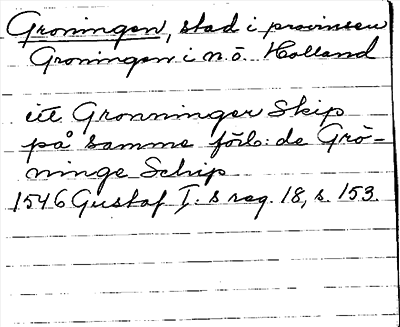 Groningen, stad i provinsen
Groningen i n.ö. Holland
itt Gronninger Skip
på samme förb: de Grö-
ninge Schip
1546 Gustaf I:s reg. 18, s. 153.